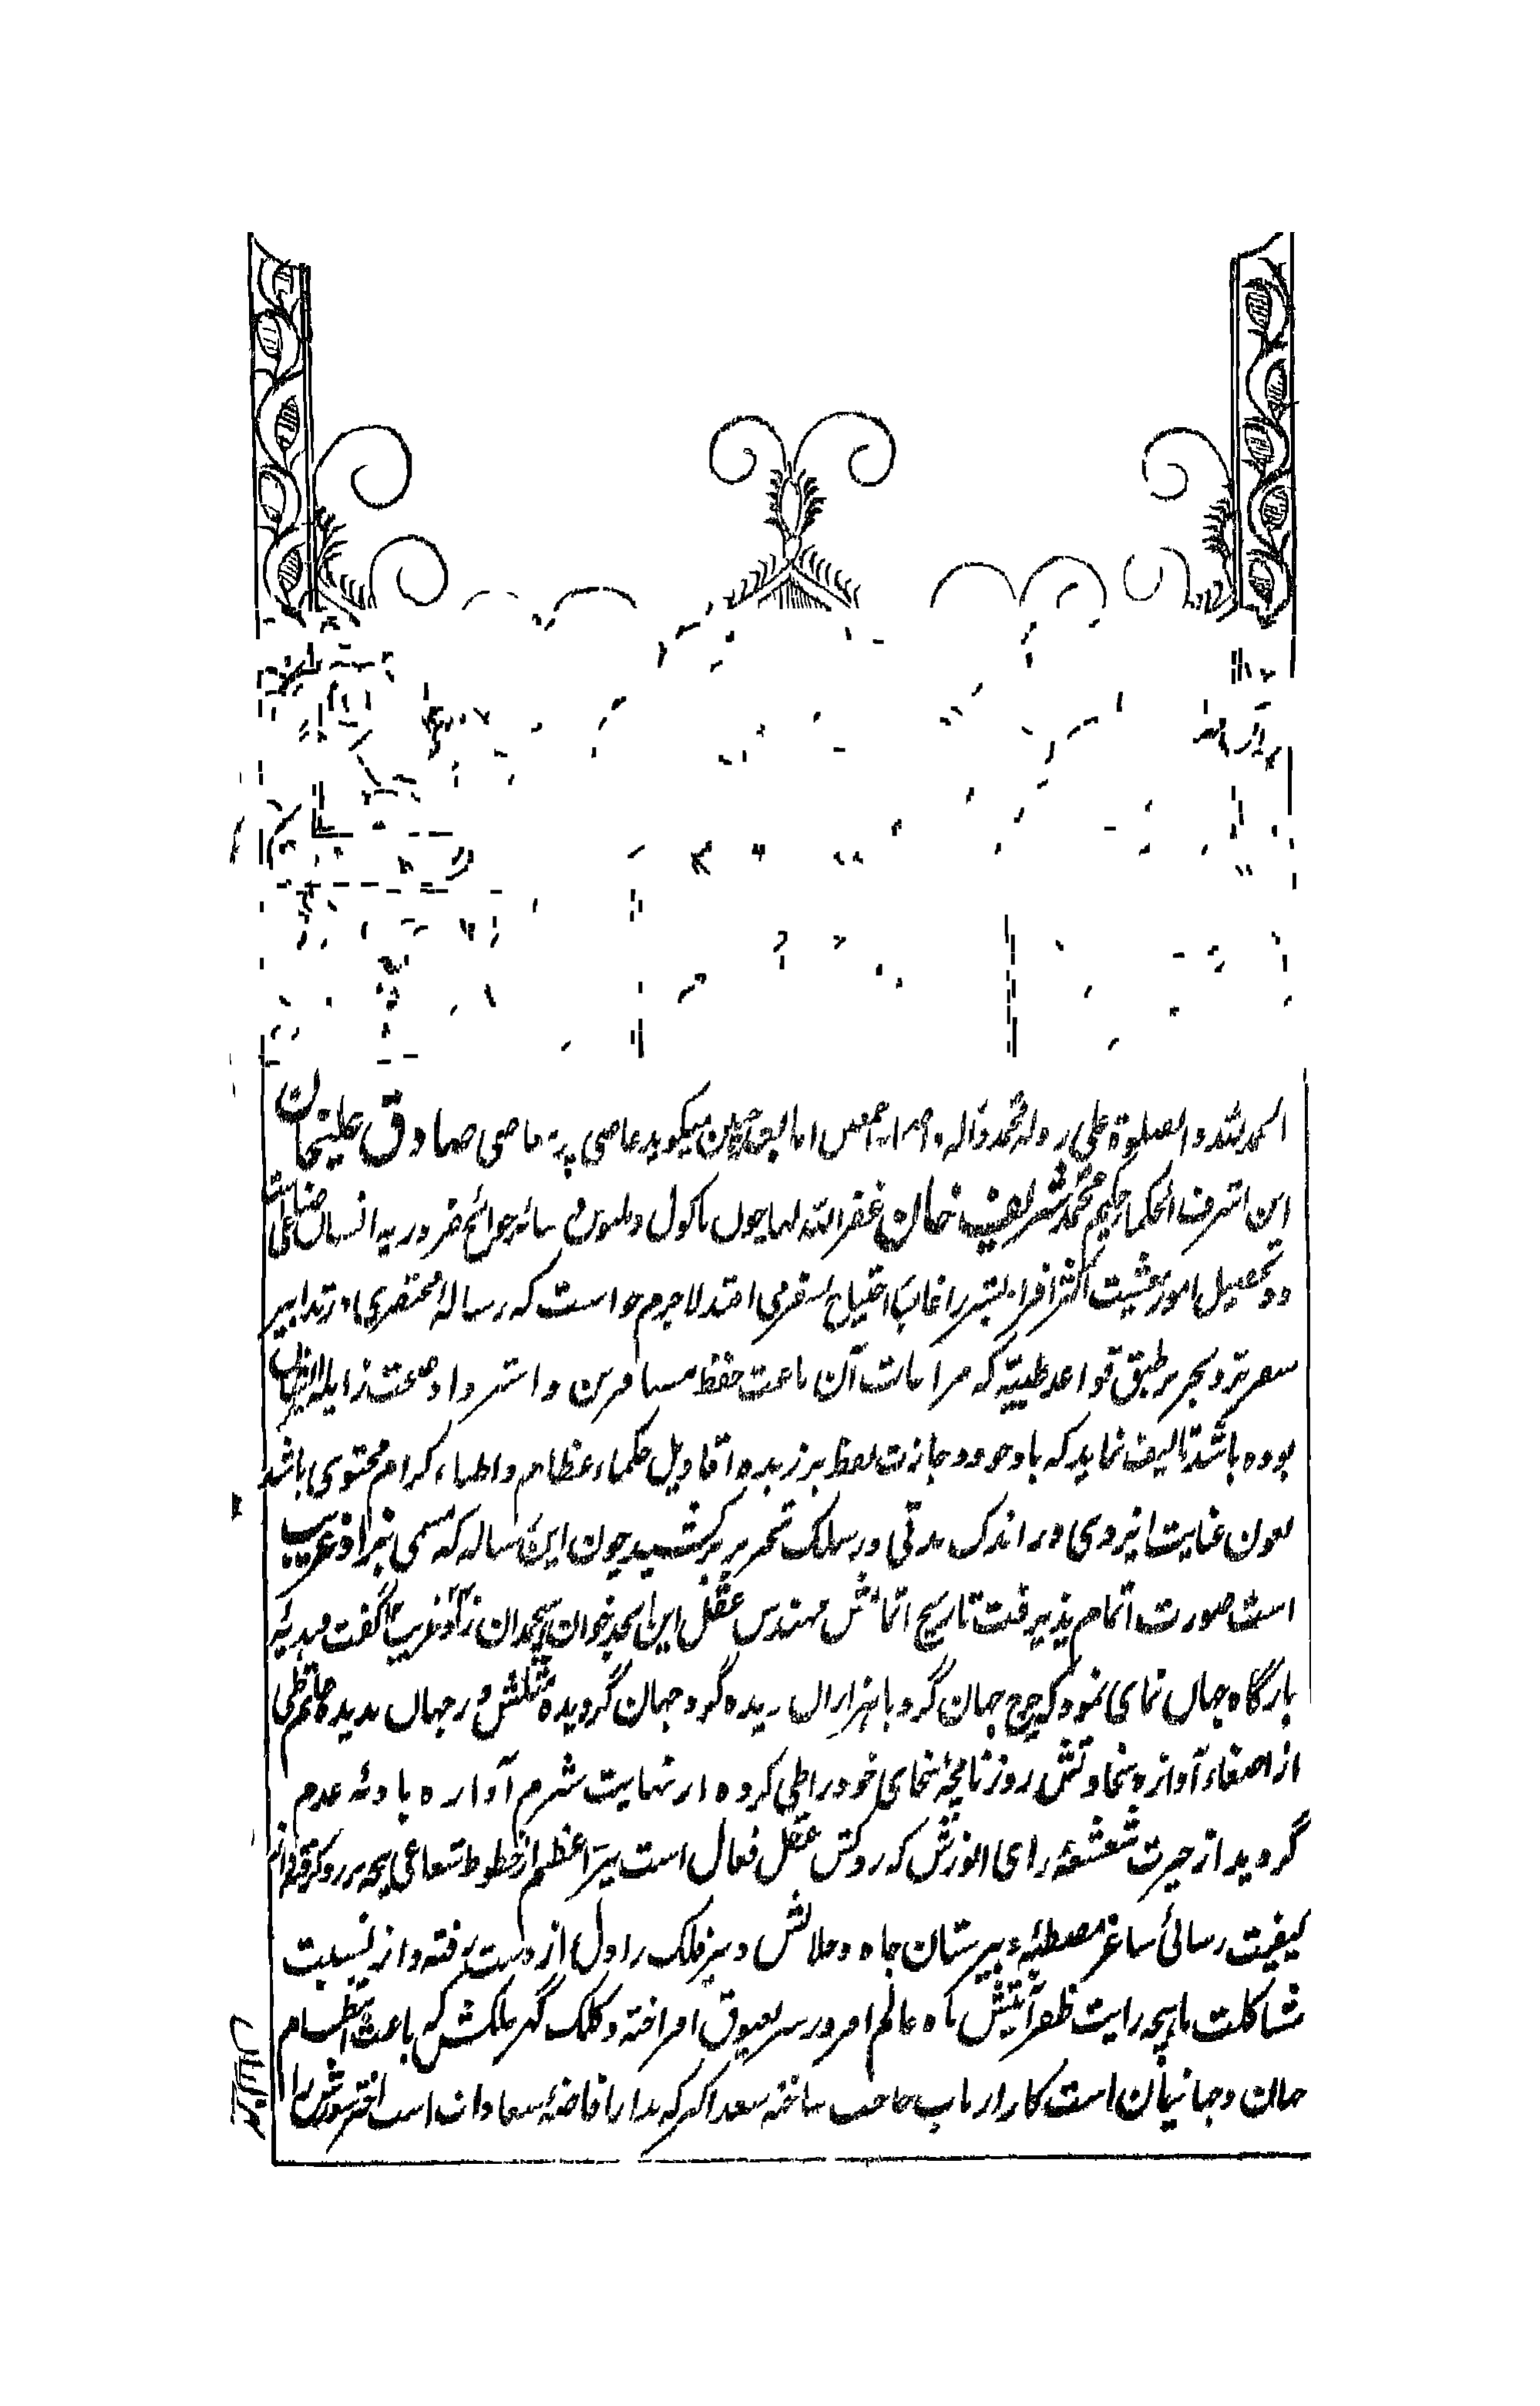 الحمد لله والصلوة علی رسوله محمد وآله و اصحابه اجمعین اما بعد چنین میگوید عاصی پر معاصی صادق علیخان
ابن اشرف الحکما حکیم محمد شریف خان غفر الله لهما چون ماکول و ملبوس و سائر حوائج ضروریه انسان
و تحصیل امور معیشت اکثر افراد بشر را غالب احتیاج بسفر می افتد لاجرم خواست که رساله مختصری در تدابیر
سفر بر و بحر بر طبق قواعد طبیّه که مراعات آن باعث حفظ مسافرین و استرداد صحت زایله
بوده باشد تالیف نماید که با وجود وجازت لفظ بر زبده اقاویل حکماء عظام و اطباء کرام محتوی باشد
بعون عنایت ایزدی در اندک مدتی در سلک تحریر برکشید چون این رساله که مسمی بزاد غریب
است صورت اتمام پذیرفت تاریخ اتمامش مهندس عقل این ابجد خوان هیچمدان زاد غریب گفت هدیه
بارگاه جهان نمای نمود که چرخ جهان گرد با هزاران دیده گرد جهان گردیده مثلش در جهان ندیده حاتم طی
از اصغاء آوازه سخاوتش روزنامچهٔ سخای خود را طی کرده از نهایت شرم آواره بادیهٔ عدم
گردید از حیرت شعشعهٔ رای انورش که روکش عقل فعال است نیر اعظم از خطوط شعاعی پنجه بر رو
کیفیت رسائی ساغر مصطبهٔ دبیرستان جاه و جلالش دبیر فلک را دل از دست رفته و از نسبت
مشاکلت ماهچه رایت ظفر آیتش ماه عالم افروز سر بعیوق افراخته و کلک گهر سلکش که باعث انتظام
جهان و جهانیان است کار ارباب حاجت ساخته سعد اکبر که مدار افاضهٔ سعادات است